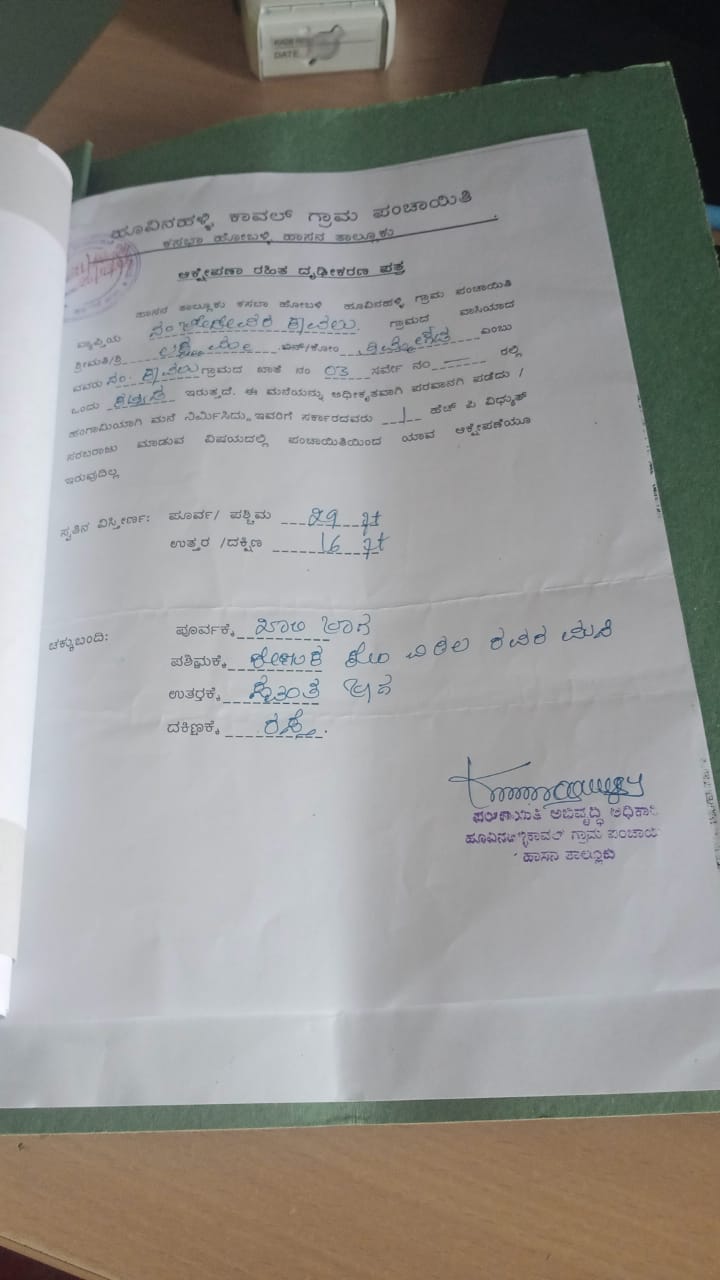 DATE
ಹೂವಿನಹಳ್ಳಿ ಕಾವಲ್ ಗ್ರಾಮ ಪಂಚಾಯಿತಿ
ಕಸಬಾ ಹೋಬಳಿ ಹಾಸನ ತಾಲ್ಲೂಕು
ಆಕ್ಷೇಪಣಾ ರಹಿತ ದೃಢೀಕರಣ ಪತ್ರ
ಹಾಸನ ತಾಲ್ಲೂಕು ಕಸಬಾ ಹೋಬಳಿ ಹೂವಿನಹಳ್ಳಿ ಗ್ರಾಮ ಪಂಚಾಯಿತಿ
ವ್ಯಾಪ್ತಿಯ ಕಾವಲು. ಗ್ರಾಮದ ವಾಸಿಯಾದ
ಶ್ರೀಮತಿ/ಶ್ರೀ ಬಿನ್/ಕೋಂ ಎಂಬು
ವವರು ಸಂ. ಕಾವಲು ಗ್ರಾಮದ ಖಾತೆ ನಂ 03 ಸರ್ವೇ ನಂ — ರಲ್ಲಿ
ಒಂದು ಇರುತ್ತದೆ. ಈ ಮನೆಯನ್ನು ಅಧೀಕೃತವಾಗಿ ಪರವಾನಗಿ ಪಡೆದು /
ಹಂಗಾಮಿಯಾಗಿ ಮನೆ ನಿರ್ಮಿಸಿದ್ದು, ಇವರಿಗೆ ಸರ್ಕಾರದವರು 1 ಹೆಚ್ ಪಿ ವಿಧ್ಯುತ್
ಸರಬರಾಜು ಮಾಡುವ ವಿಷಯದಲ್ಲಿ ಪಂಚಾಯಿತಿಯಿಂದ ಯಾವ ಆಕ್ಷೇಪಣೆಯೂ
ಇರುವುದಿಲ್ಲ
ಸ್ವತಿನ ವಿಸ್ತೀರ್ಣ: ಪೂರ್ವ/ ಪಶ್ಚಿಮ 29 ft
ಉತ್ತರ /ದಕ್ಷಿಣ 16 ft
ಚಕ್ಕುಬಂದಿ: ಪೂರ್ವಕ್ಕೆ ಖಾಲಿ ಜಾಗ
ಪಶ್ಚಿಮಕ್ಕೆ ರವರ ಮನೆ
ಉತ್ತರಕ್ಕೆ ಸ್ವಂತ ಜಾಗ
ದಕ್ಷಿಣಕ್ಕೆ ರಸ್ತೆ.
ಪಂಚಾಯಿತಿ ಅಭಿವೃದ್ಧಿ ಅಧಿಕಾರಿ
ಹೂವಿನಹಳ್ಳಿಕಾವಲ್ ಗ್ರಾಮ ಪಂಚಾಯಿ
ಹಾಸನ ತಾಲ್ಲೂಕು